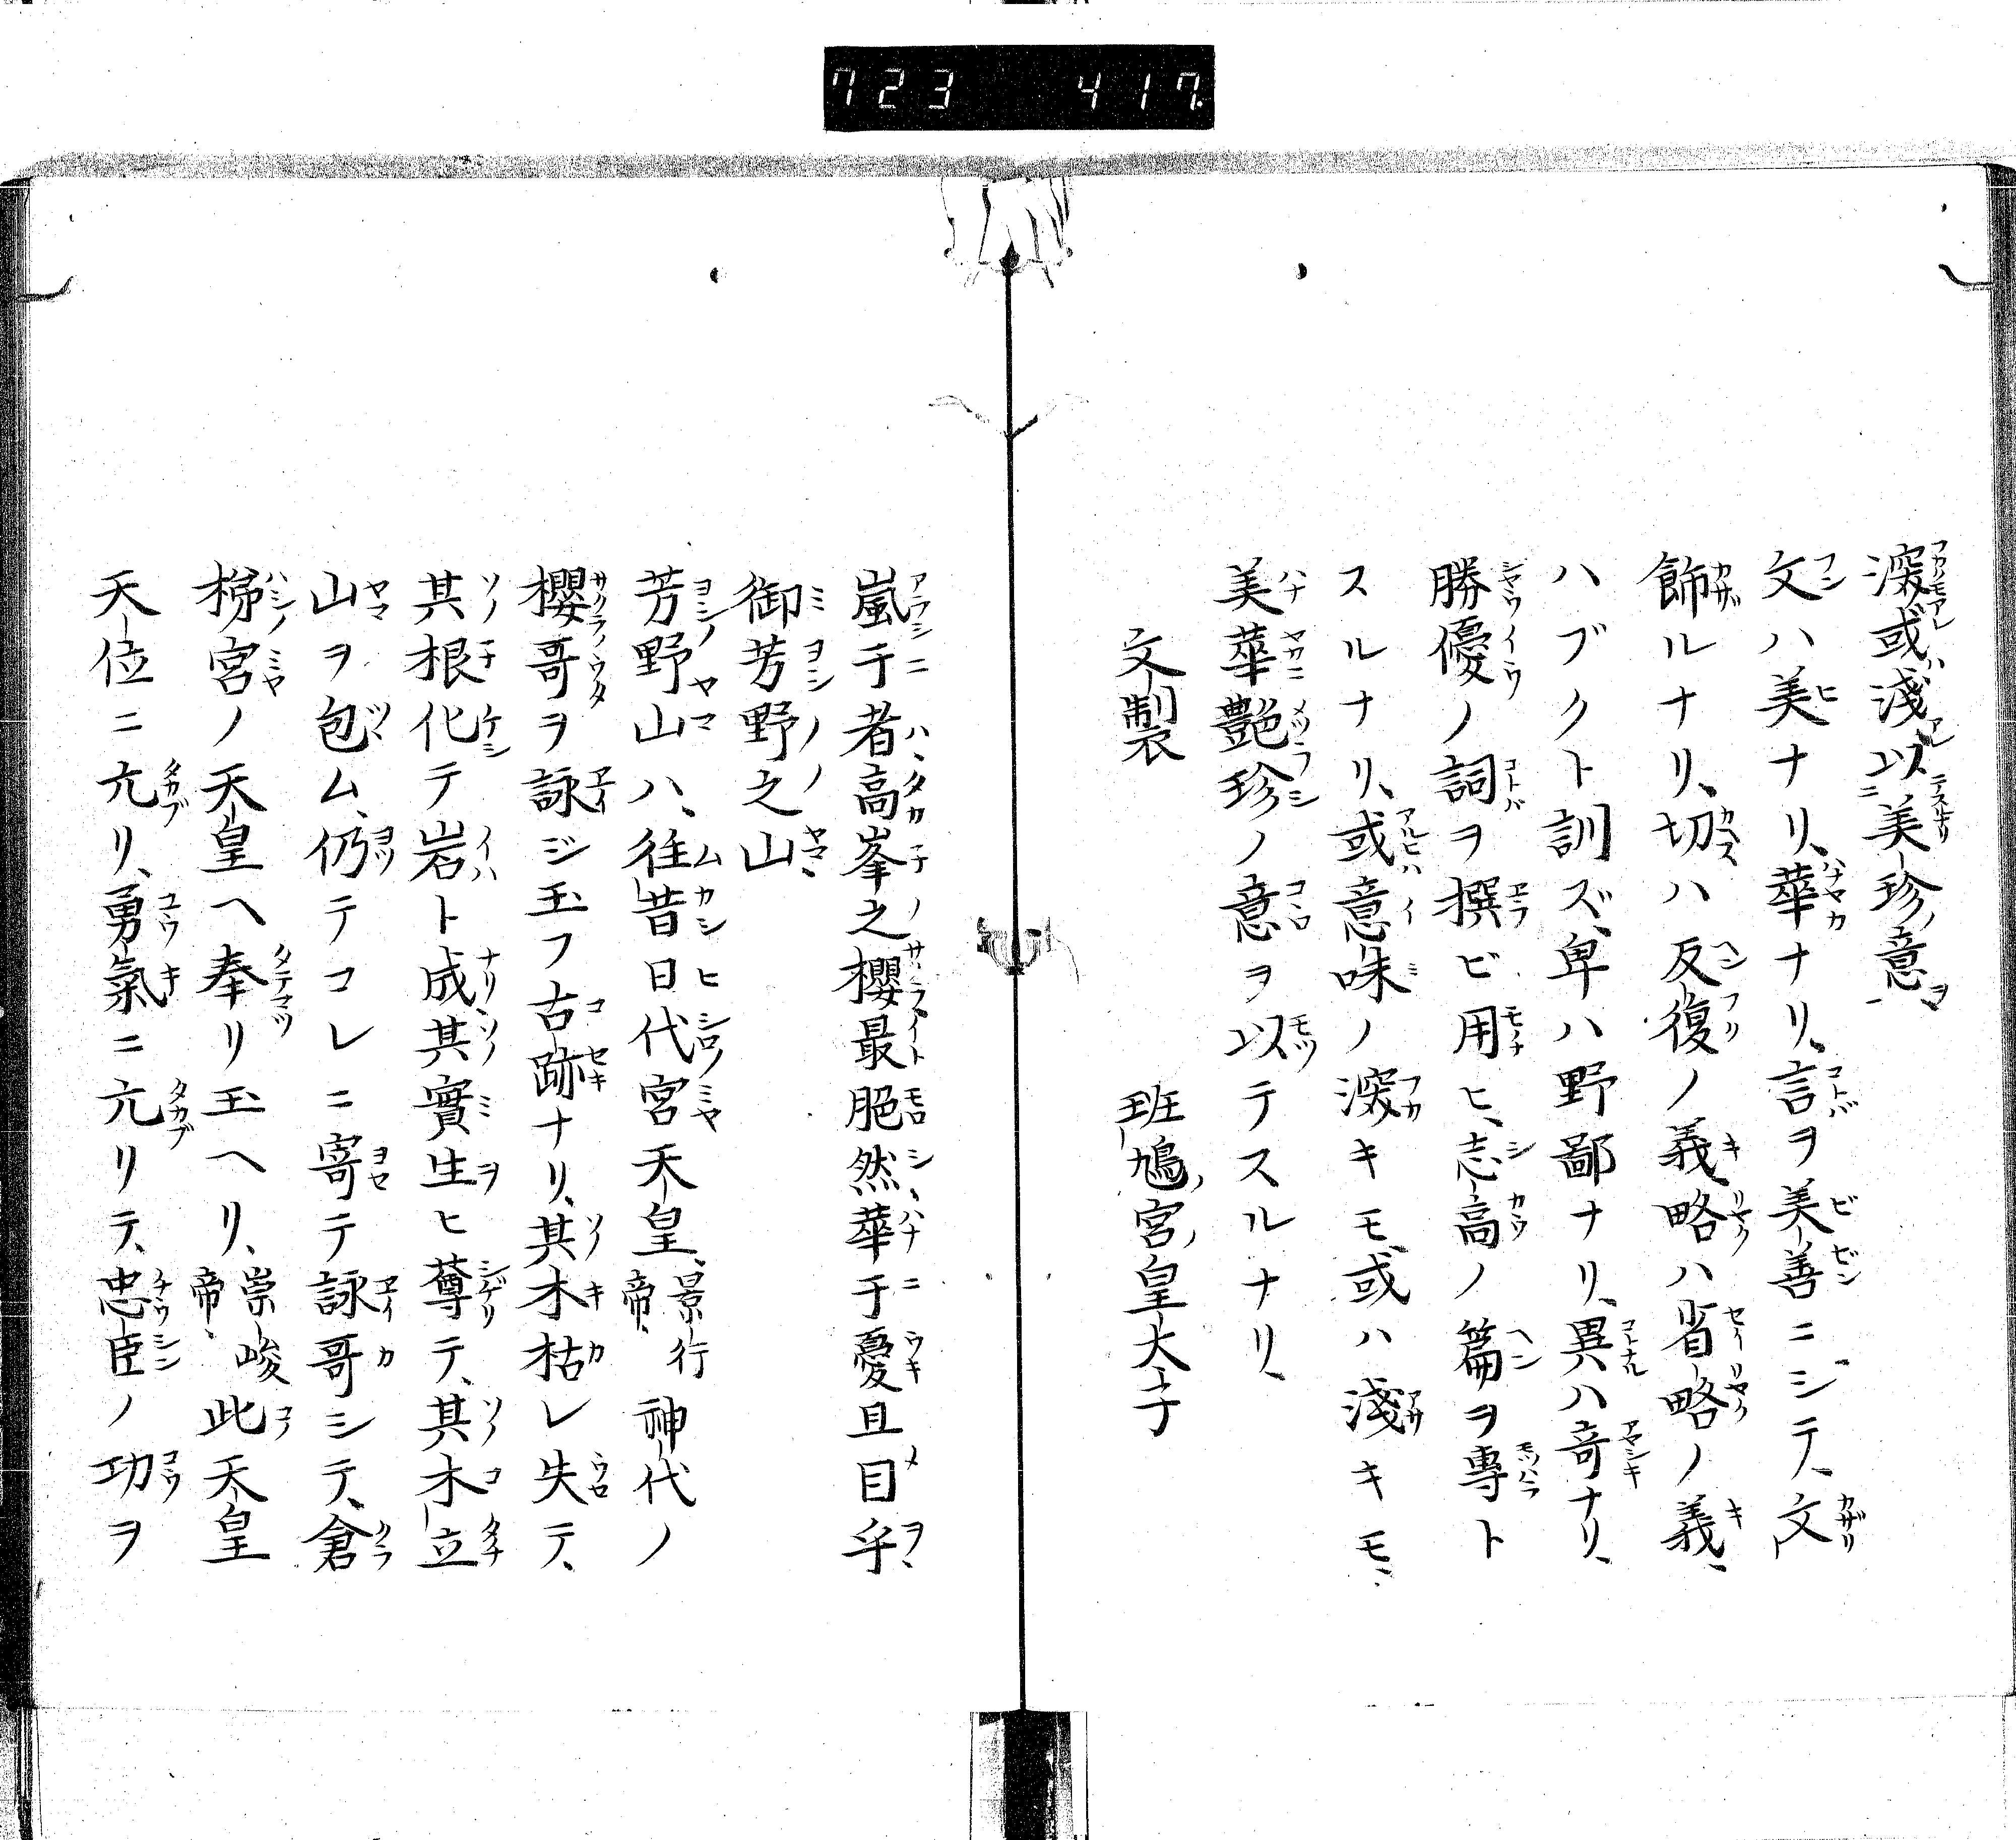 723 417
深或淺以美珍意
文ハ美ナリ、華ナリ、言ヲ美善ニシテ、文
飾ルナリ、切ハ反復ノ義略ハ省略ノ義、
ハブクト訓ズ、卑ハ野鄙ナリ、異ハ奇ナリ、
勝優ノ詞ヲ撰ビ用ヒ、志高ノ篇ヲ專ト
スルナリ、或意味ノ深キモ、或ハ淺キモ、
美華艶珍ノ意ヲ以テスルナリ、
文製 班鳩宮皇太子
嵐于者高峯之櫻最脆然華于憂且目乎
御芳野之山
芳野山ハ、往昔日代宮天皇、景行帝、神代ノ
櫻哥ヲ詠ジ玉フ古跡ナリ、其木枯レ失テ、
其根化テ岩ト成、其實生ヒ蕁テ、其木立
山ヲ包ム、仍テコレニ寄テ詠哥シテ、倉
梯宮ノ天皇ヘ奉リ玉ヘリ、崇峻帝、此天皇
天位ニ亢リ、勇氣ニ亢リテ、忠臣ノ功ヲ